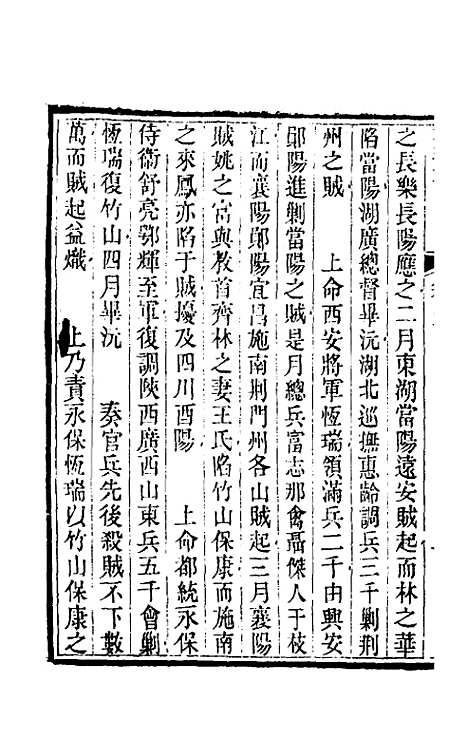 之長樂長陽應之二月東湖當陽遠安賊起而林之華
陷當陽湖廣總督畢沅湖北巡撫惠齡調兵三千剿荆
州之賊　上命西安將軍恆瑞領滿兵二千由興安
鄖陽進剿當陽之賊是月總兵富志那禽聶傑人于枝
江而襄陽鄖陽宜昌施南荆門州各山賊起三月襄陽
賊姚之富與教首齊林之妻王氏陷竹山保康而施南
之來鳳亦陷于賊擾及四川酉陽　上命都統永保
侍衞舒亮鄂輝至軍復調陝西廣西山東兵五千會剿
恆瑞復竹山四月畢沅　奏官兵先後殺賊不下數
萬而賊起益熾　上乃責永保恆瑞以竹山保康之